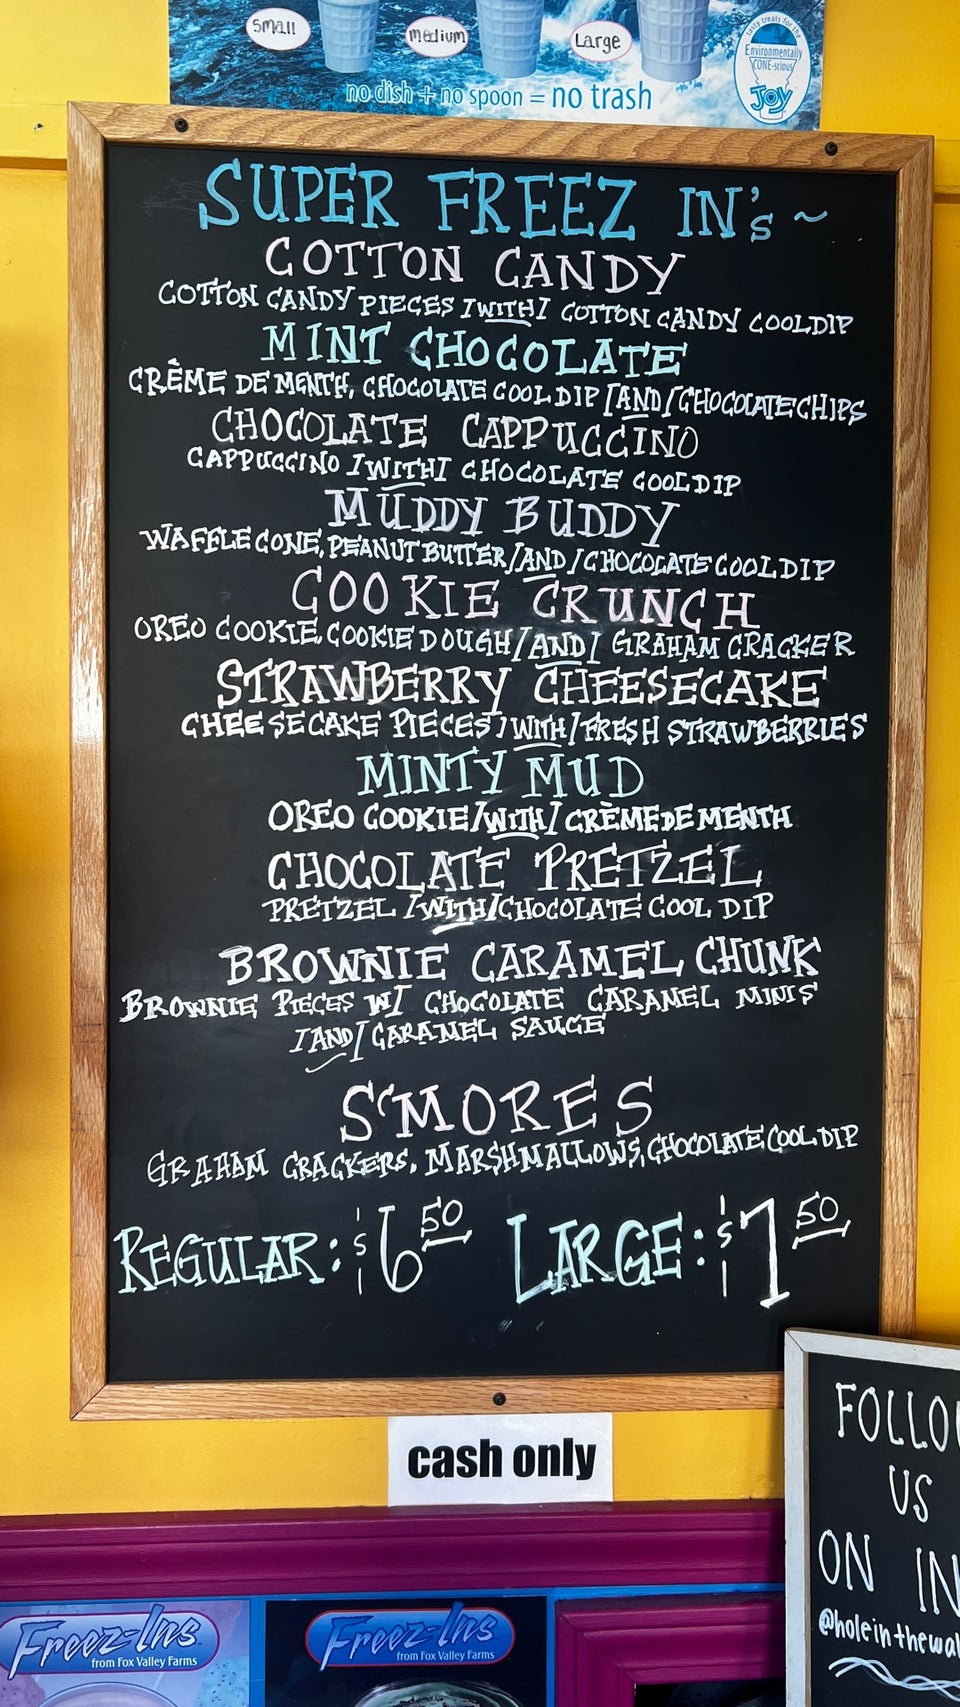 small
medium
Large
no dish + no spoon = no trash
tasty treats for the
Environmentally
CONE-scious
JOY
SUPER FREEZ IN's ~
COTTON CANDY
COTTON CANDY PIECES /WITH/ COTTON CANDY COOL DIP
MINT CHOCOLATE
CRÊME DE MENTH, CHOCOLATE COOL DIP /AND/ CHOCOLATE CHIPS
CHOCOLATE CAPPUCCINO
CAPPUCCINO /WITH/ CHOCOLATE COOL DIP
MUDDY BUDDY
WAFFLE CONE, PEANUT BUTTER /AND/ CHOCOLATE COOL DIP
COOKIE CRUNCH
OREO COOKIE, COOKIE DOUGH /AND/ GRAHAM CRACKER
STRAWBERRY CHEESECAKE
CHEESECAKE PIECES /WITH/ FRESH STRAWBERRIES
MINTY MUD
OREO COOKIE /WITH/ CRÈME DE MENTH
CHOCOLATE PRETZEL
PRETZEL /WITH/ CHOCOLATE COOL DIP
BROWNIE CARAMEL CHUNK
BROWNIE PIECES W/ CHOCOLATE CARAMEL MINIS
/AND/ CARAMEL SAUCE
S'MORES
GRAHAM CRACKERS, MARSHMALLOWS, CHOCOLATE COOL DIP
REGULAR: $6 50 LARGE: $7 50
cash only
FOLLO
US
ON IN
@holeinthewal
Freez-Ins
from Fox Valley Farms
Freez-Ins
from Fox Valley Farms